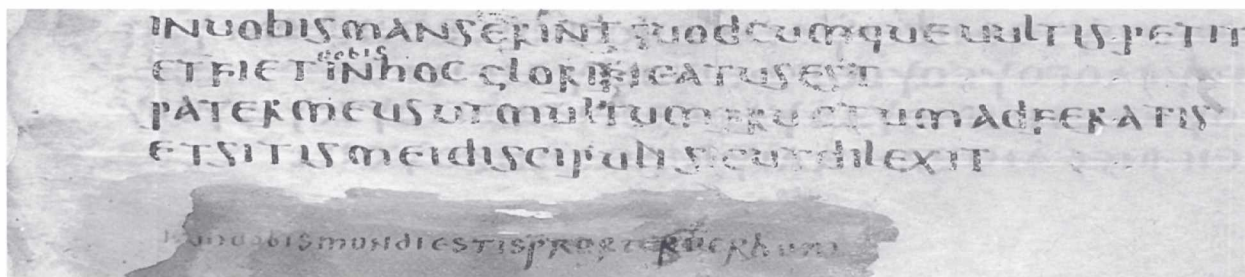 INUOBISMANSERINT QUODCUMQUEUULTISPETIT
uobis
ETFIET INHOC GLORIFICATUSEST
PATERMEUSUTMULTUMFRUCTUMADFERATIS
ETSITISMEIDISCIPULI SICUTDILEXIT
UOBISMUNDIESTISPROPTERUERBUM